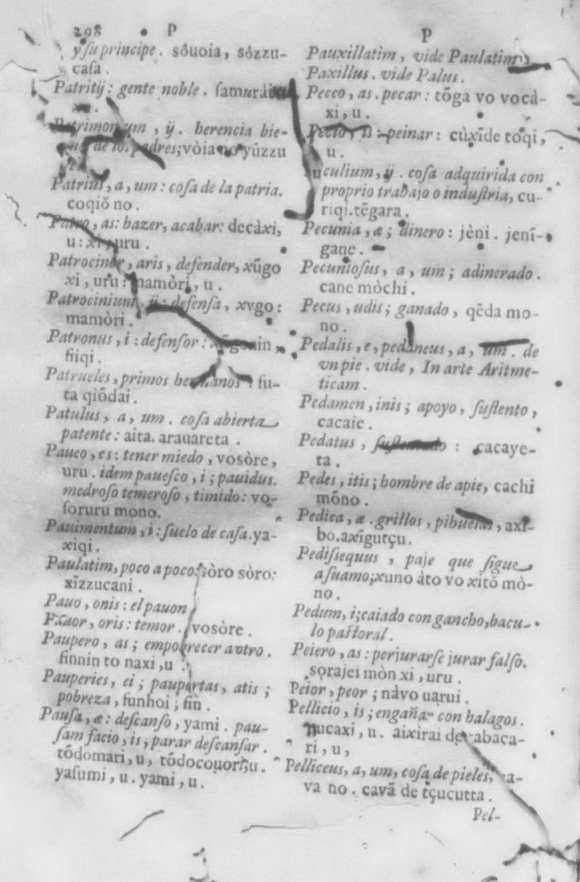 298 P
y su principe. sǒuoia, sǒzzu-
casa.
Patritij: gente noble. samurai
Patrimonium, ij. herencia bie-
de lo. padres; vòia no yùzzu
Patrius, a, um: cosa de la patria.
coqiǒ no.
Patro, as: hazer, acabar: decàxi,
u: xi, uru.
Patrocinor, aris, defender, xŭgo
xi, uru: mamòri, u.
Patrocinium, ij: defensa, xvgo:
mamòri.
Patronus, i: defensor:
fiiqi.
Patrueles, primos hermanos: fu-
ta qiǒdai.
Patulus, a, um. cosa abierta
patente: aita. arauareta.
Paueo, es: tener miedo, vosòre,
uru. idem pauesco, i; pauidus.
medroso temeroso, timido: vo-
soruru mono.
Pauimentum, i: suelo de casa. ya-
xiqi.
Paulatim, poco a poco: sòro sòro:
xĩzzucani.
Pauo, onis: el pauon
Pauor, oris: temor. vosòre.
Paupero, as; empobrecer a otro.
finnin to naxi, u.
Pauperies, ei; paupertas, atis;
pobreza, funhoi; fin.
Pausa, æ: descanso, yami. pau-
sam facio, is, parar descansar.
tǒdomari, u, tǒdocouorŝu.
yasumi, u. yami, u.
P
Pauxillatim, vide Paulatim.
Paxillus. vide Palus.
Pecco, as. pecar: tǒga vo vocà-
xi, u.
Pecto, is: peinar: cùxĩde toqi,
u.
Peculium, ij. cosa adquirida con
proprio trabajo o industria, cu-
riqi. tẽgara.
Pecunia, æ; dinero: jèni. jenĩ-
gane.
Pecuniosus, a, um; adinerado.
cane mòchi.
Pecus, udis; ganado, qẽda mo-
no.
Pedalis, e, pedaneus, a, um. de
vn pie. vide, In arte Aritme-
ticam.
Pedamen, inis; apoyo, sustento,
cacaie.
Pedatus, sustentado: cacaye-
ta.
Pedes, itis; hombre de apie, cachi
mǒno.
Pedica, æ. grillos, pihuelas, axĩ-
bo. axĩgutçu.
Pedissequus, paje que sigue
a su amo; xuno àto vo xitǒ mò-
no.
Pedum, i; caiado con gancho, bacu-
lo pastoral.
Peiero, as: perjurarse jurar falso.
sorajei mòn xi, uru.
Peior, peor; nàvo uarui.
Pellicio, is; engañar con halagos.
nucaxi, u. aixirai de tabaca-
ri, u,
Pelliceus, a, um, cosa de pieles, ca-
va no. cavã de tçucutta.
Pel-